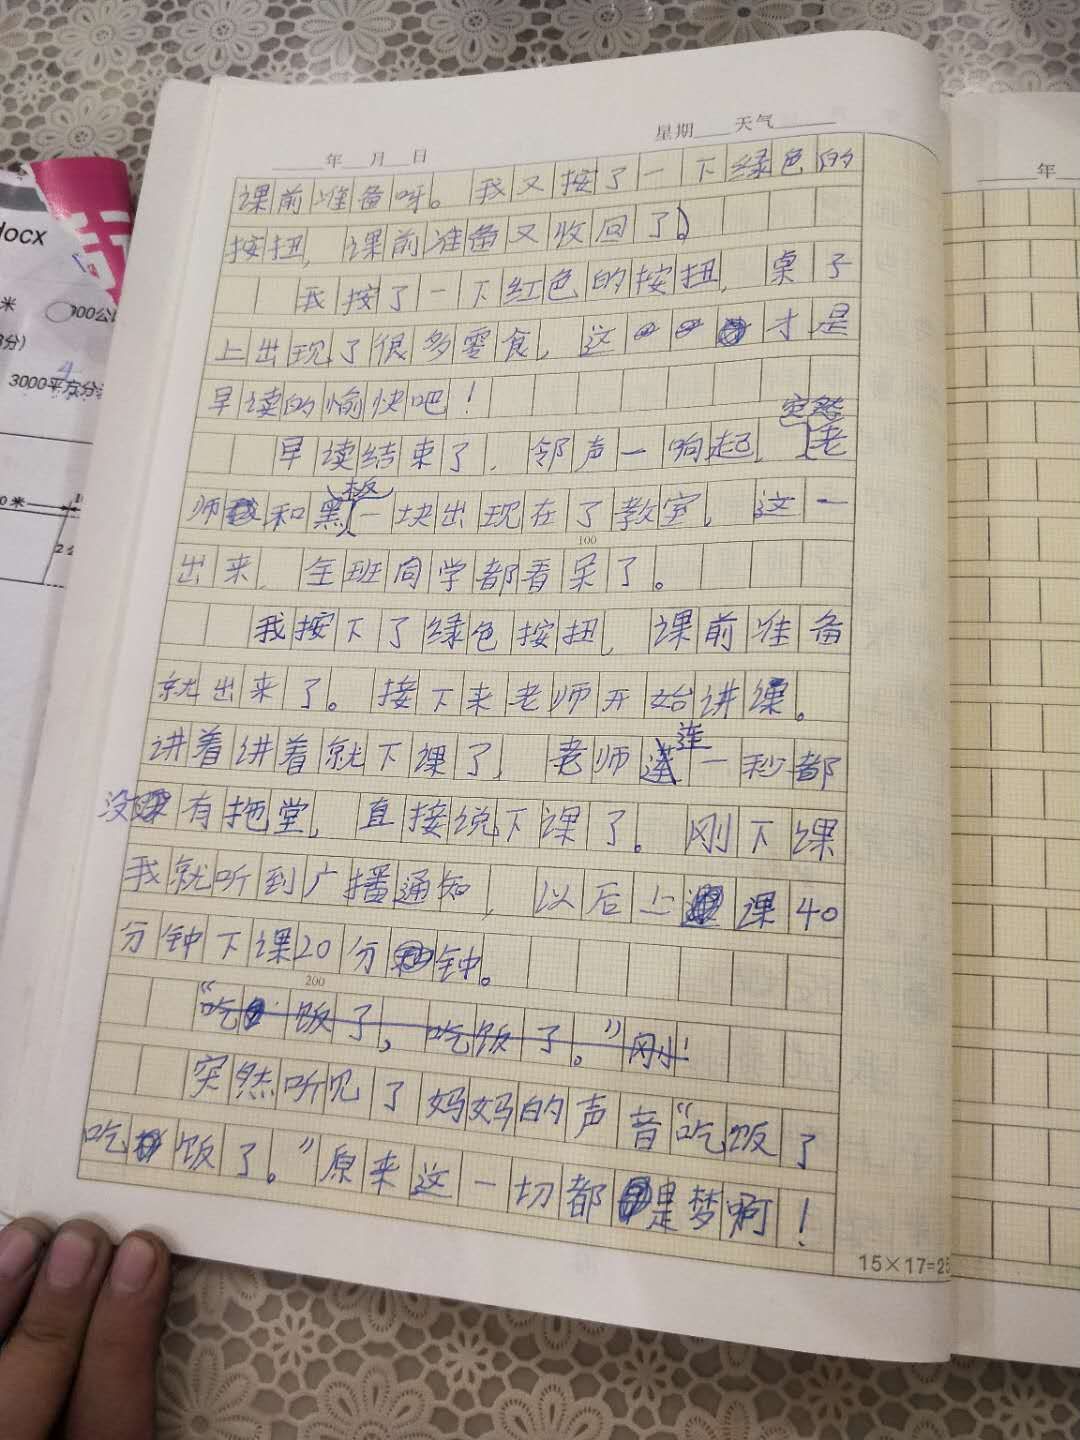 星期 天气
年 月 日
课前准备呀。我又按了一下绿色的
按扭，课前准备又收回了）
我按了一下红色的按扭，桌子
上出现了很多零食，这才是
早读的愉快吧！
突然
早读结束了，邻声一响起，老
板
师和黑一块出现在了教室，这一
100
出来，全班同学都看呆了。
我按下了绿色按扭，课前准备
就出来了。接下来老师开始讲课。
讲着讲着就下课了，老师连一秒都
没有拖堂，直接说下课了。刚下课
我就听到广播通知，以后上课40
分钟下课20分钟。
200
“吃饭了，吃饭了。”刚
突然听见了妈妈的声音“吃饭了
吃饭了。”原来这一切都是梦啊！
15×17=25
年
docx
米
000公
分）
3000平方分
4
0米
2